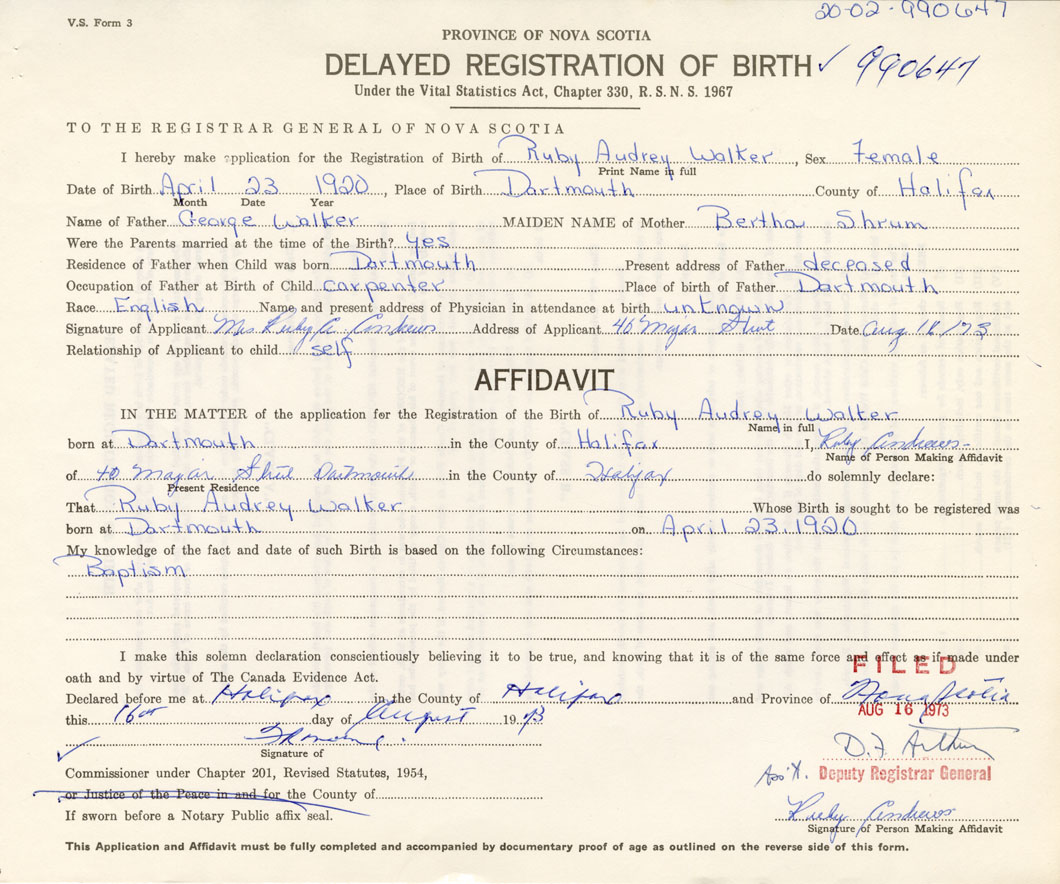 V.S. Form 3
20-02-990647
PROVINCE OF NOVA SCOTIA
DELAYED REGISTRATION OF BIRTH ✓ 990647
Under the Vital Statistics Act, Chapter 330, R.S.N.S. 1967
TO THE REGISTRAR GENERAL OF NOVA SCOTIA
I hereby make application for the Registration of Birth of Ruby Audrey Walker, Sex Female
Print Name in full
Date of Birth April 23 1920, Place of Birth Dartmouth County of Halifax
Month Date Year
Name of Father George Walker MAIDEN NAME of Mother Bertha Shrum
Were the Parents married at the time of the Birth? yes
Residence of Father when Child was born Dartmouth Present address of Father deceased
Occupation of Father at Birth of Child carpenter Place of birth of Father Dartmouth
Race English Name and present address of Physician in attendance at birth unknown
Signature of Applicant Mrs. Ruby A. Andrews Address of Applicant 40 Street Date Aug 16/73
Relationship of Applicant to child self
AFFIDAVIT
IN THE MATTER of the application for the Registration of the Birth of Ruby Audrey Walker
Name in full
born at Dartmouth in the County of Halifax I, Ruby Andrews
Name of Person Making Affidavit
of 40 Street Dartmouth in the County of Halifax do solemnly declare:
Present Residence
That Ruby Audrey Walker Whose Birth is sought to be registered was
born at Dartmouth on April 23, 1920
My knowledge of the fact and date of such Birth is based on the following Circumstances:
Baptism
I make this solemn declaration conscientiously believing it to be true, and knowing that it is of the same force and effect as if made under
FILED
oath and by virtue of The Canada Evidence Act.
Declared before me at Halifax in the County of Halifax and Province of Nova Scotia
this 16th day of August 1973
AUG 16 1973
Signature of
D. F. Arthur
Commissioner under Chapter 201, Revised Statutes, 1954,
Ass't. Deputy Registrar General
or Justice of the Peace in and for the County of
If sworn before a Notary Public affix seal.
Ruby Andrews
Signature of Person Making Affidavit
This Application and Affidavit must be fully completed and accompanied by documentary proof of age as outlined on the reverse side of this form.